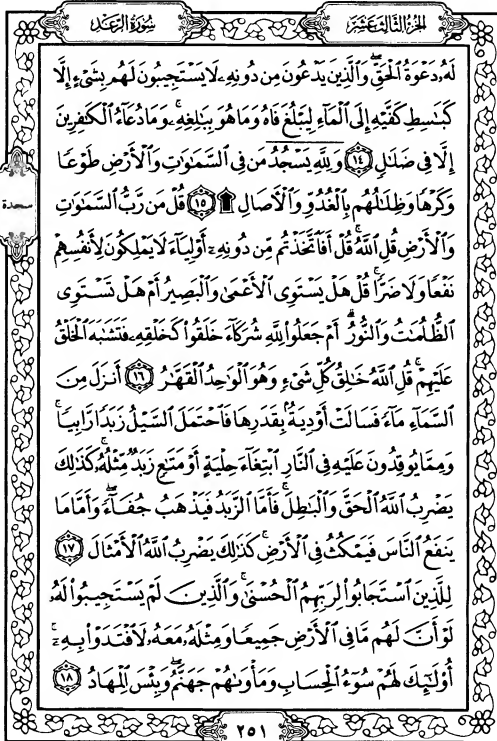 سُورَةُ الرَّعْدِ
الجُزءُ الثَّالِثَ عَشَرَ
لَهُۥ دَعْوَةُ ٱلْحَقِّ ۖ وَٱلَّذِينَ يَدْعُونَ مِن دُونِهِۦ لَا يَسْتَجِيبُونَ لَهُم بِشَىْءٍ إِلَّا
كَبَٰسِطِ كَفَّيْهِ إِلَى ٱلْمَآءِ لِيَبْلُغَ فَاهُ وَمَا هُوَ بِبَٰلِغِهِۦ ۚ وَمَا دُعَآءُ ٱلْكَٰفِرِينَ
إِلَّا فِى ضَلَٰلٍ ١٤ وَلِلَّهِ يَسْجُدُ مَن فِى ٱلسَّمَٰوَٰتِ وَٱلْأَرْضِ طَوْعًا
وَكَرْهًا وَظِلَٰلُهُم بِٱلْغُدُوِّ وَٱلْءَاصَالِ ۩ ١٥ قُلْ مَن رَّبُّ ٱلسَّمَٰوَٰتِ
سجدة
وَٱلْأَرْضِ قُلِ ٱللَّهُ ۚ قُلْ أَفَٱتَّخَذْتُم مِّن دُونِهِۦٓ أَوْلِيَآءَ لَا يَمْلِكُونَ لِأَنفُسِهِمْ
نَفْعًا وَلَا ضَرًّا ۚ قُلْ هَلْ يَسْتَوِى ٱلْأَعْمَىٰ وَٱلْبَصِيرُ أَمْ هَلْ تَسْتَوِى
ٱلظُّلُمَٰتُ وَٱلنُّورُ ۗ أَمْ جَعَلُوا۟ لِلَّهِ شُرَكَآءَ خَلَقُوا۟ كَخَلْقِهِۦ فَتَشَٰبَهَ ٱلْخَلْقُ
عَلَيْهِمْ ۚ قُلِ ٱللَّهُ خَٰلِقُ كُلِّ شَىْءٍ وَهُوَ ٱلْوَٰحِدُ ٱلْقَهَّٰرُ ١٦ أَنزَلَ مِنَ
ٱلسَّمَآءِ مَآءً فَسَالَتْ أَوْدِيَةٌۢ بِقَدَرِهَا فَٱحْتَمَلَ ٱلسَّيْلُ زَبَدًا رَّابِيًا ۚ
وَمِمَّا يُوقِدُونَ عَلَيْهِ فِى ٱلنَّارِ ٱبْتِغَآءَ حِلْيَةٍ أَوْ مَتَٰعٍ زَبَدٌ مِّثْلُهُۥ ۚ كَذَٰلِكَ
يَضْرِبُ ٱللَّهُ ٱلْحَقَّ وَٱلْبَٰطِلَ ۚ فَأَمَّا ٱلزَّبَدُ فَيَذْهَبُ جُفَآءً ۖ وَأَمَّا مَا
يَنفَعُ ٱلنَّاسَ فَيَمْكُثُ فِى ٱلْأَرْضِ ۚ كَذَٰلِكَ يَضْرِبُ ٱللَّهُ ٱلْأَمْثَالَ ١٧
لِلَّذِينَ ٱسْتَجَابُوا۟ لِرَبِّهِمُ ٱلْحُسْنَىٰ ۚ وَٱلَّذِينَ لَمْ يَسْتَجِيبُوا۟ لَهُۥ
لَوْ أَنَّ لَهُم مَّا فِى ٱلْأَرْضِ جَمِيعًا وَمِثْلَهُۥ مَعَهُۥ لَٱفْتَدَوْا۟ بِهِۦٓ ۚ
أُو۟لَٰٓئِكَ لَهُمْ سُوٓءُ ٱلْحِسَابِ وَمَأْوَىٰهُمْ جَهَنَّمُ ۖ وَبِئْسَ ٱلْمِهَادُ ١٨
٢٥١